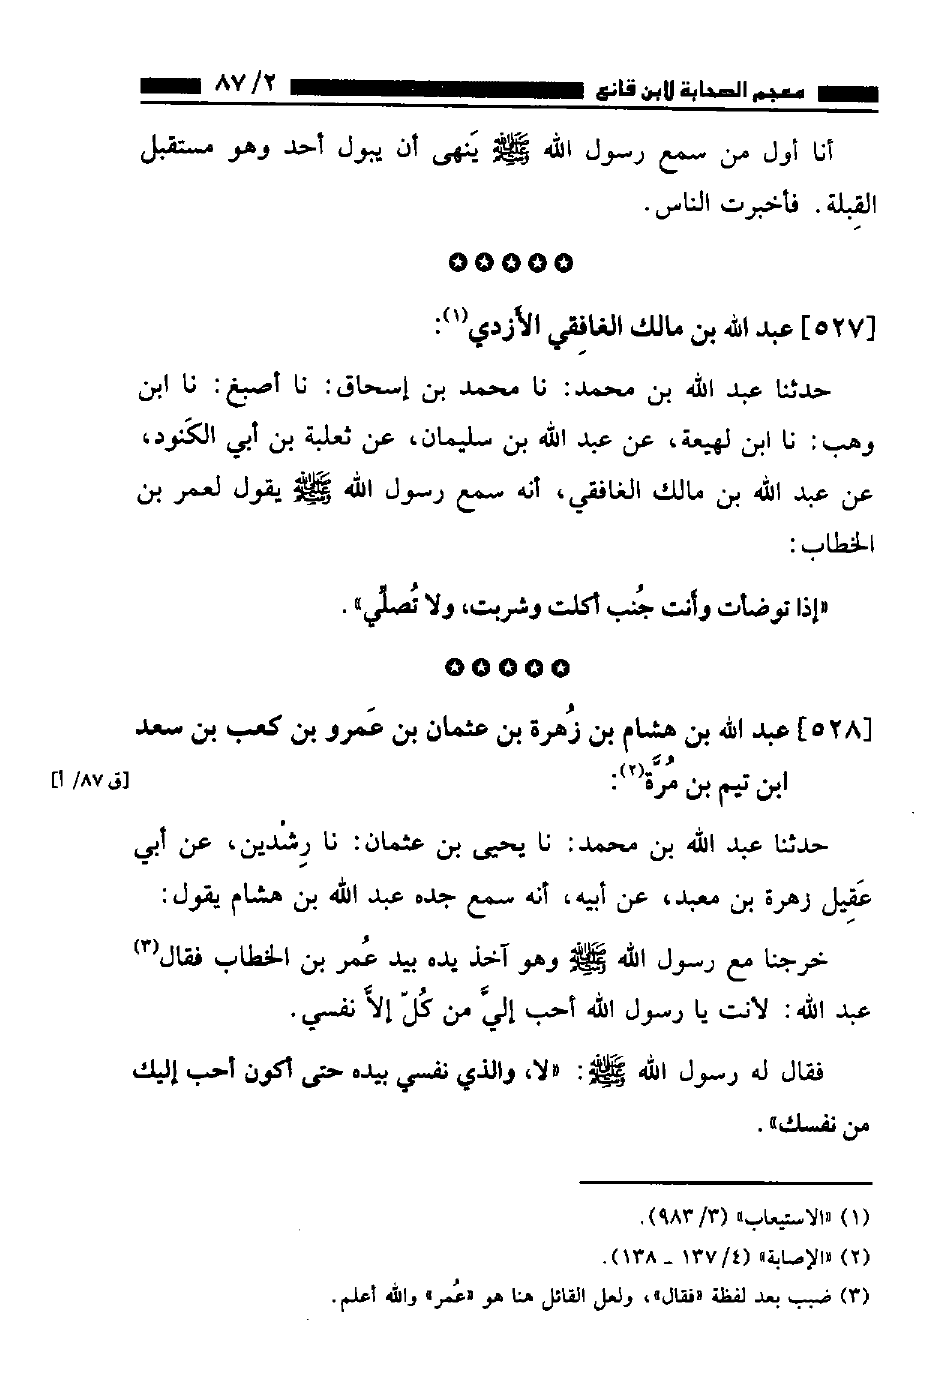 معجم الصحابة لابن قانع ٨٧/٢
أنا أول من سمع رسول الله ﷺ يَنهى أن يبول أحد وهو مستقبل
القِبلة. فأخبرت الناس.
[٥٢٧] عبد الله بن مالك الغافِقي الأَزدي(١):
حدثنا عبد الله بن محمد: نا محمد بن إسحاق: نا أصبغ: نا ابن
وهب: نا ابن لهيعة، عن عبد الله بن سليمان، عن ثعلبة بن أبي الكَنود،
عن عبد الله بن مالك الغافقي، أنه سمع رسول الله ﷺ يقول لعمر بن
الخطاب:
«إذا توضأت وأنت جُنب أكلت وشربت، ولا تُصلِّي».
[٥٢٨] عبد الله بن هشام بن زُهرة بن عثمان بن عَمرو بن كعب بن سعد
ابن تيم بن مُرَّة(٢): [ق ٨٧/ أ]
حدثنا عبد الله بن محمد: نا يحيى بن عثمان: نا رِشْدين، عن أبي
عَقِيل زهرة بن معبد، عن أبيه، أنه سمع جده عبد الله بن هشام يقول:
خرجنا مع رسول الله ﷺ وهو آخذ يده بيد عُمر بن الخطاب فقال(٣)
عبد الله: لانت يا رسول الله أحب إليَّ من كُلّ إلاَّ نفسي.
فقال له رسول الله ﷺ: «لا، والذي نفسي بيده حتى أكون أحب إليك
من نفسك».
(١) «الاستيعاب» (٩٨٣/٣).
(٢) «الإصابة» (٤/ ١٣٧ ـ ١٣٨).
(٣) ضبب بعد لفظة «فقال»، ولعل القائل هنا هو «عُمر» والله أعلم.